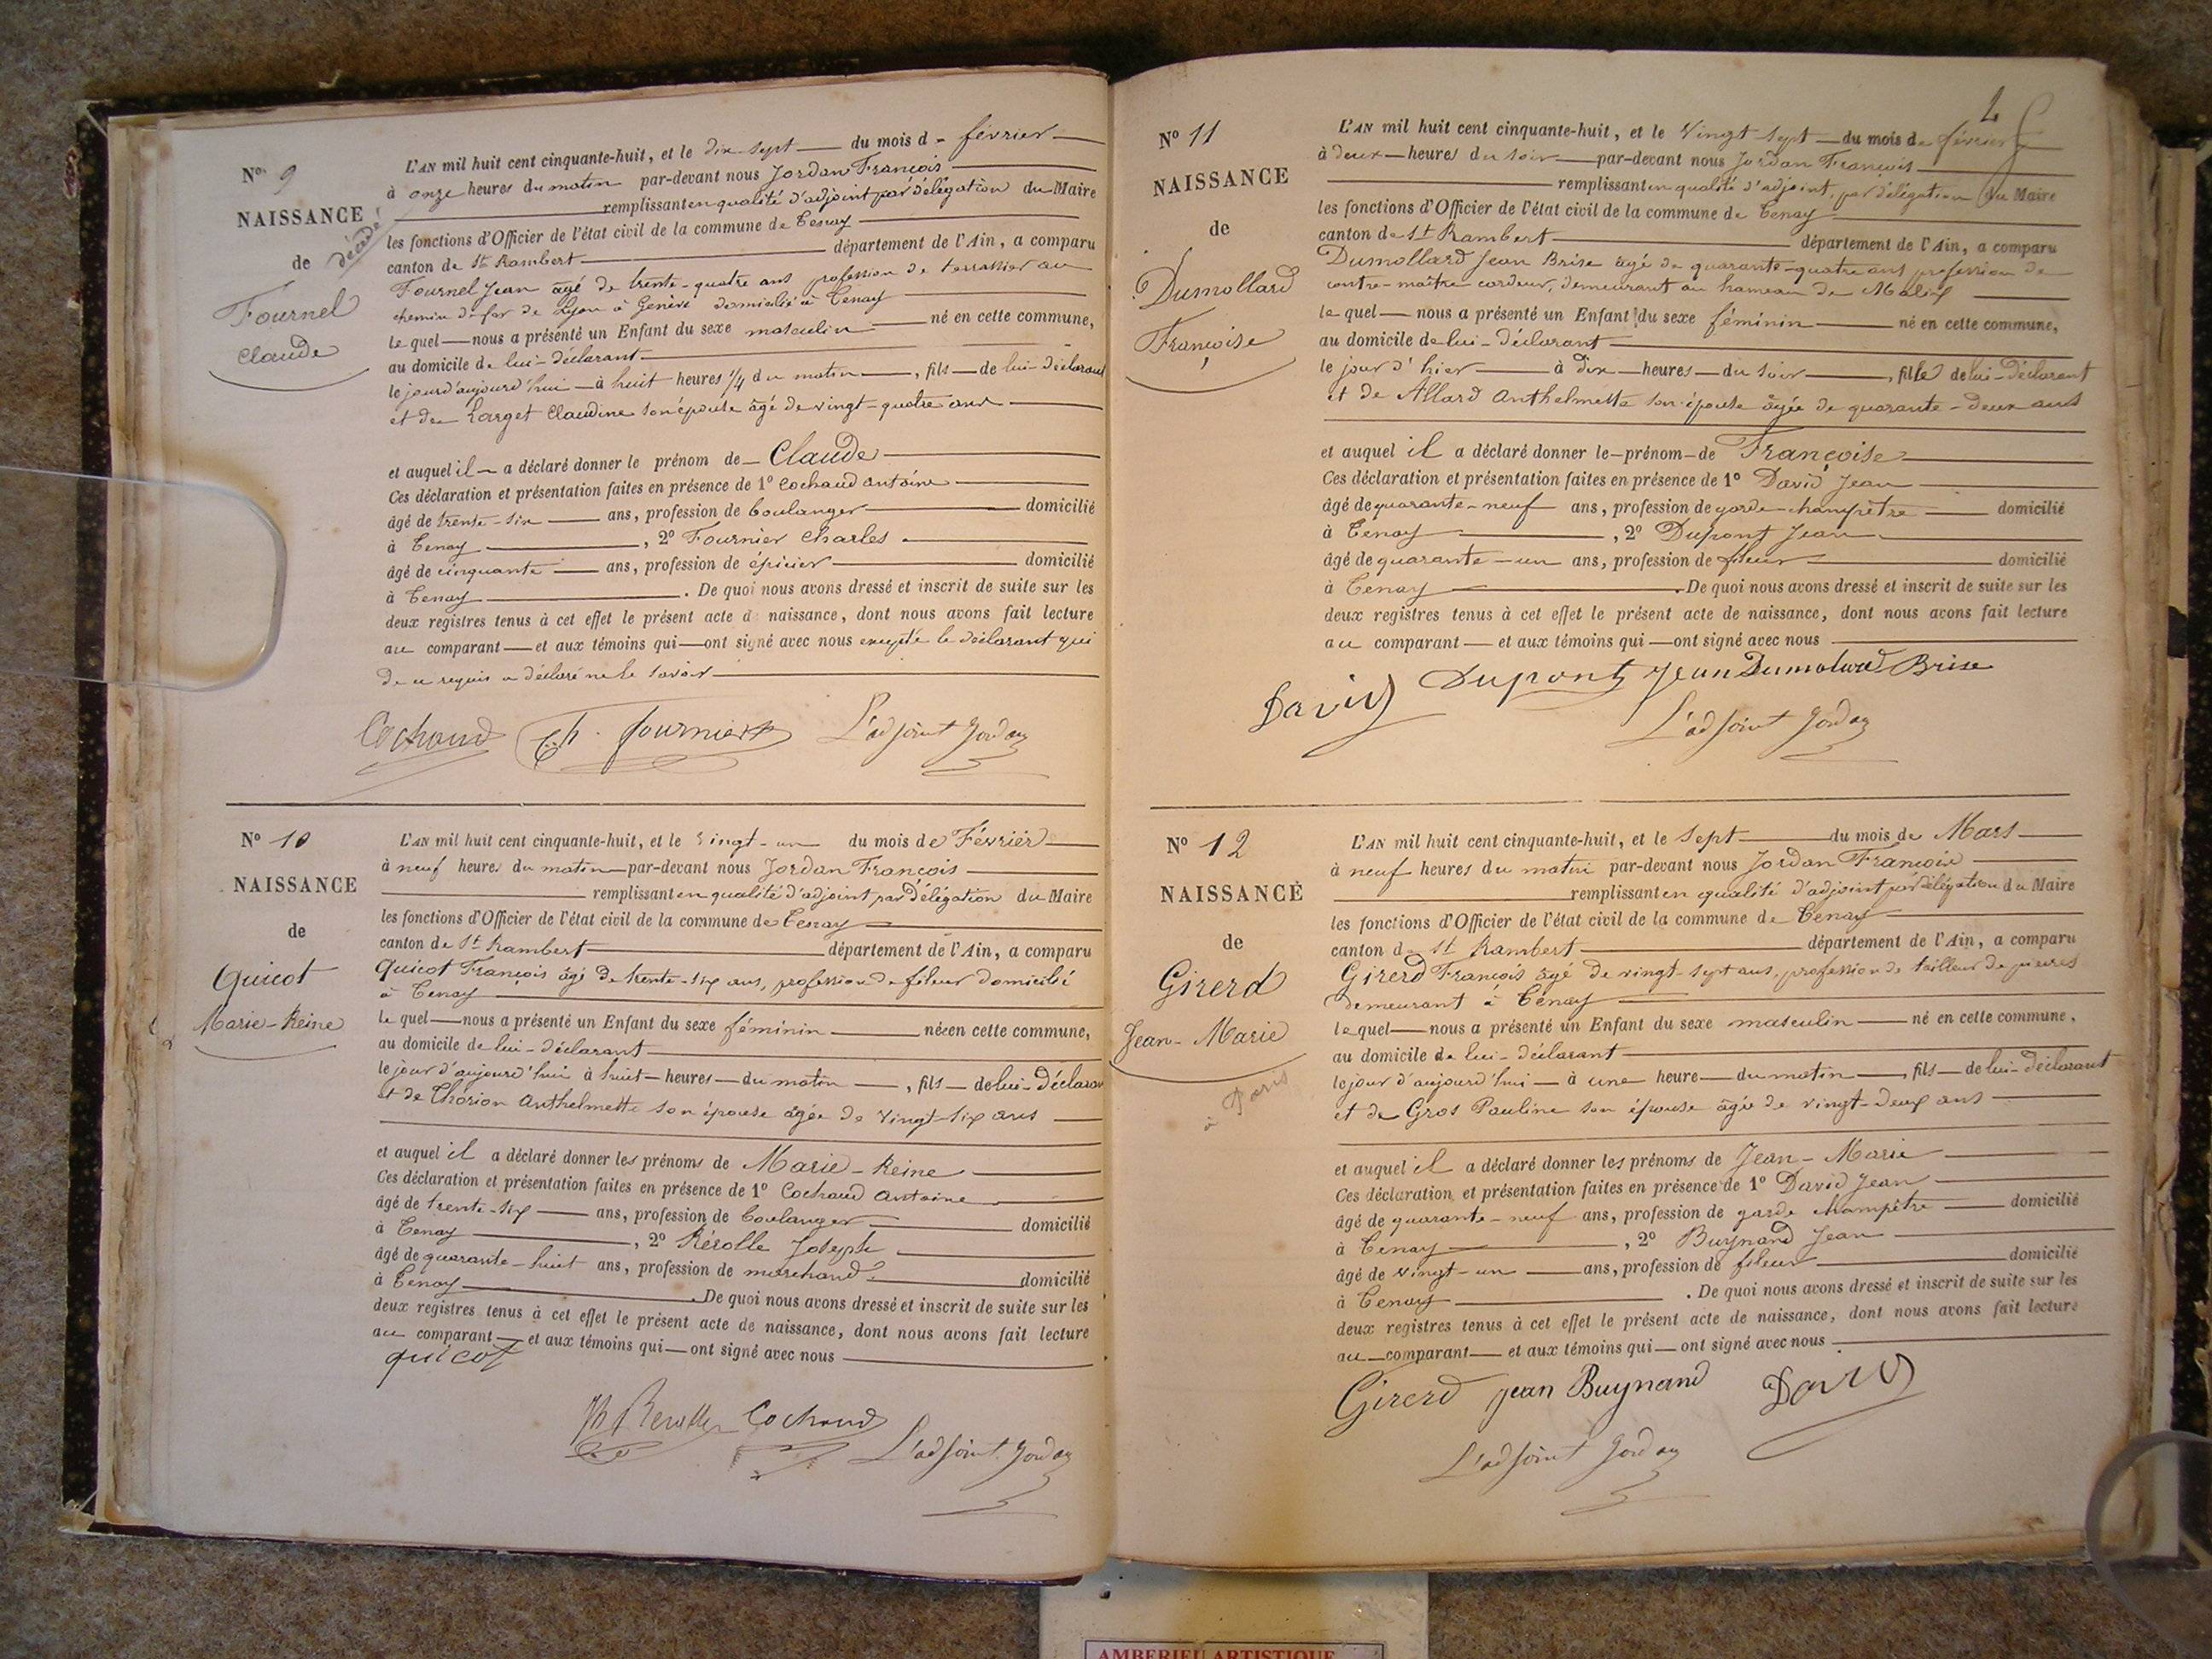 No 9
NAISSANCE
de
décédé
Fournel
Claude
L'AN mil huit cent cinquante-huit, et le dix sept du mois d février
à onze heures du matin par-devant nous Jordan François
remplissant en qualité d'adjoint par délégation du Maire
les fonctions d'Officier de l'état civil de la commune de Tenay
canton de St Rambert département de l'Ain, a comparu
Fournel Jean âgé de trente-quatre ans profession de terrassier au
chemin de fer de Lyon à Genève domicilié à Tenay
lequel nous a présenté un Enfant du sexe masculin né en cette commune,
au domicile de lui-déclarant
le jour d'aujourd'hui à huit heures 1/4 du matin, fils de lui-déclarant
et de Larget Claudine son épouse âgé de vingt-quatre ans
et auquel il a déclaré donner le prénom de Claude
Ces déclaration et présentation faites en présence de 1º Cochaud antoine
âgé de trente-six ans, profession de boulanger domicilié
à Tenay, 2º Fournier Charles
âgé de cinquante ans, profession de épicier domicilié
à Tenay. De quoi nous avons dressé et inscrit de suite sur les
deux registres tenus à cet effet le présent acte de naissance, dont nous avons fait lecture
au comparant et aux témoins qui ont signé avec nous excepté le déclarant qui
de ce requis a déclaré ne le savoir
Cochaud Ch. fournier L'adjoint Jordan
No 10
NAISSANCE
de
Quicot
Marie-Reine
L'AN mil huit cent cinquante-huit, et le vingt-un du mois de Février
à neuf heures du matin par-devant nous Jordan François
remplissant en qualité d'adjoint par délégation du Maire
les fonctions d'Officier de l'état civil de la commune de Tenay
canton de St Rambert département de l'Ain, a comparu
Quicot François âgé de trente-six ans, profession de fileur domicilié
à Tenay
lequel nous a présenté un Enfant du sexe féminin née en cette commune,
au domicile de lui-déclarant
le jour d'aujourd'hui à huit heures du matin, fils de lui-déclarant
et de Thorion Anthelmette son épouse âgée de vingt-six ans
et auquel il a déclaré donner les prénoms de Marie-Reine
Ces déclaration et présentation faites en présence de 1º Cochaud Antoine
âgé de trente-six ans, profession de boulanger domicilié
à Tenay, 2º Rérolle Joseph
âgé de quarante-huit ans, profession de marchand domicilié
à Tenay. De quoi nous avons dressé et inscrit de suite sur les
deux registres tenus à cet effet le présent acte de naissance, dont nous avons fait lecture
au comparant et aux témoins qui ont signé avec nous
quicot
Rerolle Cochaud L'adjoint Jordan
No 11
NAISSANCE
de
Dumollard
Françoise
L'AN mil huit cent cinquante-huit, et le vingt sept du mois de février
à deux heures du soir par-devant nous Jordan François
remplissant en qualité d'adjoint par délégation du Maire
les fonctions d'Officier de l'état civil de la commune de Tenay
canton de St Rambert département de l'Ain, a comparu
Dumollard Jean Brise âgé de quarante-quatre ans profession de
contre-maître cardeur, demeurant au hameau de Malix
lequel nous a présenté un Enfant du sexe féminin né en cette commune,
au domicile de lui-déclarant
le jour d'hier à dix heures du soir, fille de lui-déclarant
et de Allard Anthelmette son épouse âgée de quarante-deux ans
et auquel il a déclaré donner le prénom de Françoise
Ces déclaration et présentation faites en présence de 1º David Jean
âgé de quarante-neuf ans, profession de garde-champêtre domicilié
à Tenay, 2º Dupont Jean
âgé de quarante-un ans, profession de fileur domicilié
à Tenay. De quoi nous avons dressé et inscrit de suite sur les
deux registres tenus à cet effet le présent acte de naissance, dont nous avons fait lecture
au comparant et aux témoins qui ont signé avec nous
David Dupont Jean Dumolard Brise
L'adjoint Jordan
No 12
NAISSANCE
de
Girerd
Jean-Marie
à Paris
L'AN mil huit cent cinquante-huit, et le sept du mois de Mars
à neuf heures du matin par-devant nous Jordan François
remplissant en qualité d'adjoint par délégation du Maire
les fonctions d'Officier de l'état civil de la commune de Tenay
canton de St Rambert département de l'Ain, a comparu
Girerd François âgé de vingt-sept ans, profession de tailleur de pierres
demeurant à Tenay
lequel nous a présenté un Enfant du sexe masculin né en cette commune,
au domicile de lui-déclarant
le jour d'aujourd'hui à une heure du matin, fils de lui-déclarant
et de Gros Pauline son épouse âgée de vingt-deux ans
et auquel il a déclaré donner les prénoms de Jean-Marie
Ces déclaration et présentation faites en présence de 1º David Jean
âgé de quarante-neuf ans, profession de garde champêtre domicilié
à Tenay, 2º Buynand Jean
âgé de vingt-un ans, profession de fileur domicilié
à Tenay. De quoi nous avons dressé et inscrit de suite sur les
deux registres tenus à cet effet le présent acte de naissance, dont nous avons fait lecture
au comparant et aux témoins qui ont signé avec nous
Girerd jean Buynand David
L'adjoint Jordan
AMBERIEU ARTISTIQUE